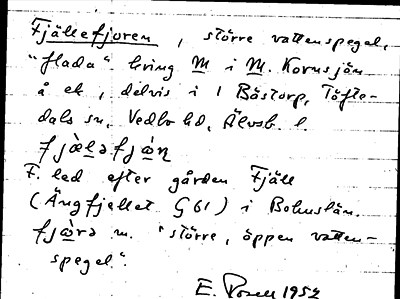 Fjällefjoren, större vattenspegel,
"flada" kring M i M. Kornsjön
å ek, delvis i 1 Bästorp, Töfte-
dals sn, Vedbo hd, Älvsb. l.
fjæ̀ləfjɷ̀ɳ
F. led efter gården Fjäll
(Ängfjellet G61) i Bohuslän.
fjɷ̀rə m. "större, öppen vatten-
spegel".
E. Rosell 1952